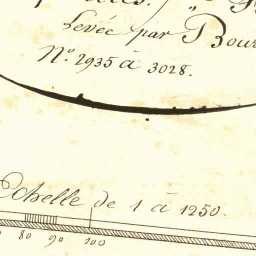 Levée par
N.º 2935 à 3028.
Echelle de 1 à 1250.
80 90 100